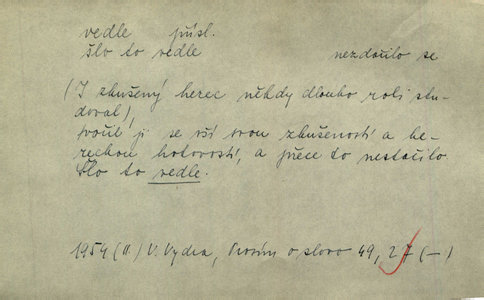 vedle přísl.
šlo to vedle nezdařilo se
(I zkušený herec někdy dlouho roli stu-
doval),
tvořil ji se vší svou zkušeností a he-
reckou hotovostí, a přece to nestačilo
Šlo to vedle.
1954 (II) V. Vydra, Prosím o slovo 49, 27 (–)